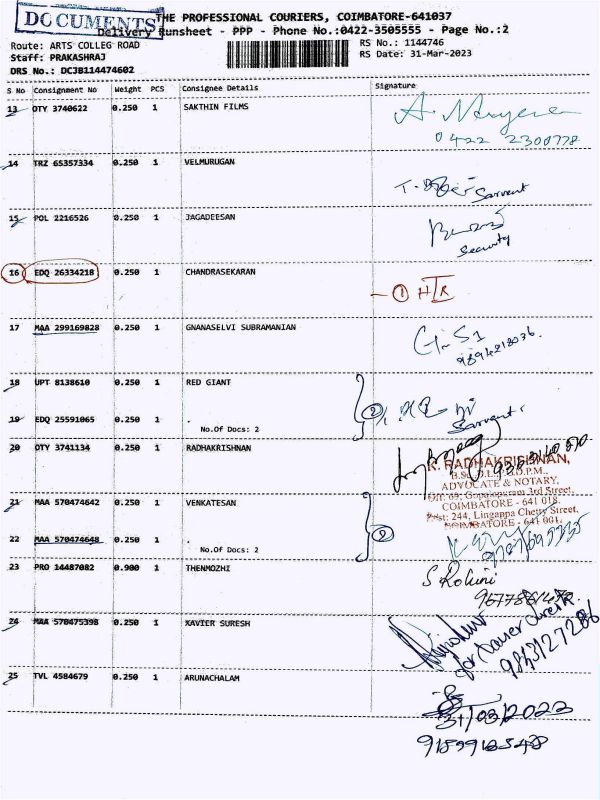 DOCUMENTS
THE PROFESSIONAL COURIERS, COIMBATORE-641037
Delivery Runsheet - PPP - Phone No.:0422-3505555 - Page No.:2
Route: ARTS COLLEG ROAD
RS No.: 1144746
Staff: PRAKASHRAJ
RS Date: 31-Mar-2023
DRS No.: DCJB114474602
S No Consignment No Weight PCS Consignee Details Signature
13 OTY 3740622 0.250 1 SAKTHIN FILMS
0422 2300778
14 TRZ 65357334 0.250 1 VELMURUGAN
Servent
15 POL 2216526 0.250 1 JAGADEESAN
Security
16 EDQ 26334218 0.250 1 CHANDRASEKARAN
17 MAA 299169828 0.250 1 GNANASELVI SUBRAMANIAN
18 UPT 8138610 0.250 1 RED GIANT
2
19 EDQ 25591065 0.250 1 .
Servent
No.Of Docs: 2
20 OTY 3741134 0.250 1 RADHAKRISHNAN
K. RADHAKRISHNAN,
ADVOCATE & NOTARY,
Off: 69, Gopalapuram 3rd Street,
COIMBATORE - 641 018.
Rest: 244, Lingappa Chetty Street,
COIMBATORE - 641 001.
21 MAA 570474642 0.250 1 VENKATESAN
2
22 MAA 570474648 0.250 1 .
No.Of Docs: 2
23 PRO 14487082 0.900 1 THENMOZHI
S Rohini
24 MAA 570475398 0.250 1 XAVIER SURESH
for Xavier Suresh
9843127286
25 TVL 4584679 0.250 1 ARUNACHALAM
31/03/2023